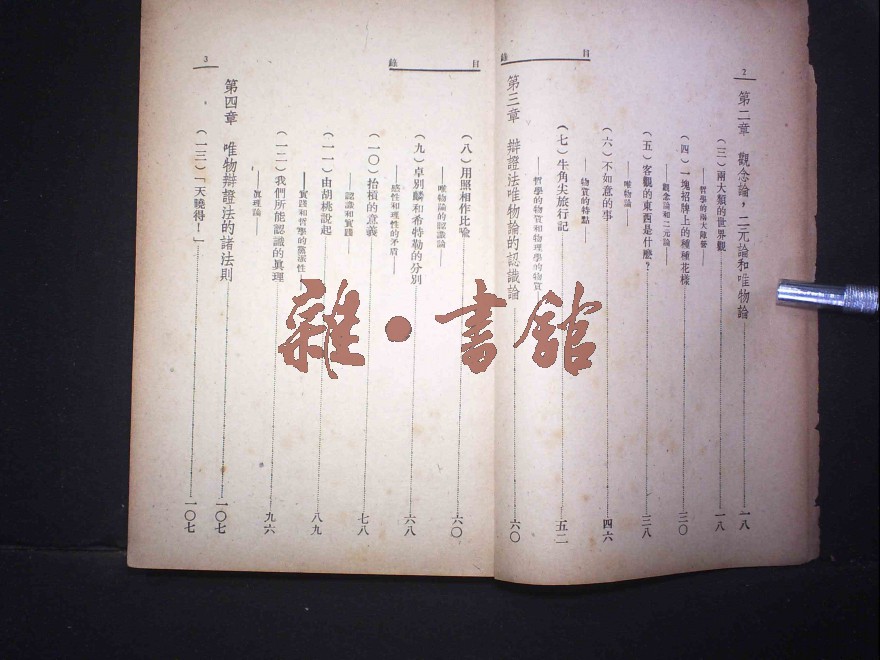 目錄
2
第二章 觀念論，二元論和唯物論……一八
（三）兩大類的世界觀……一八
——哲學的兩大陣營——
（四）一塊招牌上的種種花樣……三〇
——觀念論和二元論——
（五）客觀的東西是什麼？……三八
——唯物論——
（六）不如意的事……四六
——物質的特點——
（七）牛角尖旅行記……五二
——哲學的物質和物理學的物質——
第三章 辯證法唯物論的認識論……六〇
目錄
3
（八）用照相作比喻……六〇
——唯物論的認識論——
（九）卓別麟和希特勒的分別……六八
——感性和理性的矛盾——
（一〇）抬槓的意義……七八
——認識和實踐——
（一一）由胡桃說起……八九
——實踐和哲學的黨派性——
（一二）我們所能認識的眞理……九六
——眞理論——
第四章 唯物辯證法的諸法則……一〇七
（一三）「天曉得！」……一〇七
雜·書館